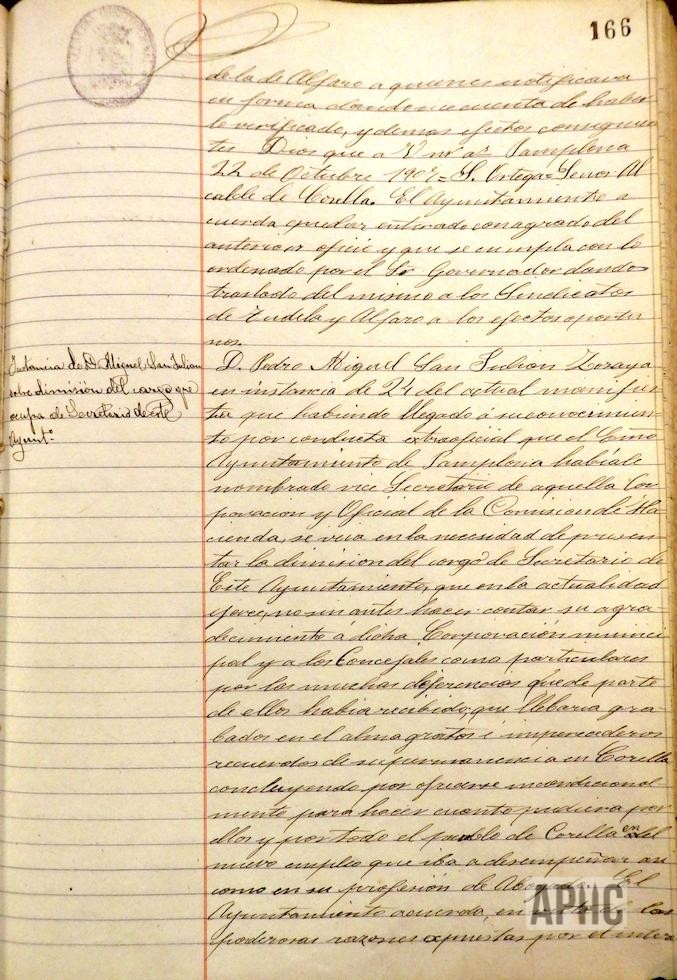 166
de la de Alfaro a quienes notificara
en forma dandome cuenta de haber
lo verificado, y demas efectos consiguien
tes Dios que a V m' a' Pamplona
22 de Octubre 190 = S. Ortega = Señor Al
calde de Corella. El Ayuntamiento a
cuerda quedar enterado con agrado del
anterior oficio y que se cumpla con lo
ordenado por el Sr Governador dando
traslado del mismo a los Sindicatos
de Tudela y Alfaro a los efectos oportu
nos.
Instancia de D. Miguel San Julian
sobre dimisión del cargo que
ocupa de Secretario de este
Ayunt.º
D. Pedro Miguel San Julian Zoraya
en instancia de 24 del actual manifies
ta que habiendo llegado á su conocimien
to por conducta extraoficial que el Excmo
Ayuntamiento de Pamplona habíale
nombrado vice Secretario de aquella Cor
poracion y Oficial de la Comision de Ha
cienda, se veia en la necesidad de presen
tar la dimision del cargo de Secretario de
Este Ayuntamiento, que en la actualidad
ejerce, no sin antes hacer contar su agra
decimiento á dicha Corporación munici
pal y a los Concejales como particulares
por las muchas diferencias que de parte
de ellos habia recibido; que llebaria gra
bados en el alma gratos é imperecederos
recuerdos de su permanencia en Corella
concluyendo por ofrecerse incondicional
mente para hacer cuanto pudiera por
ellos y por todo el pueblo de Corella en el
nuevo empleo que iba a desempeñar asi
como en su profesión de Abogado. El
Ayuntamiento acuerda, en de las
poderosas razones expuestas por el intere
APHC